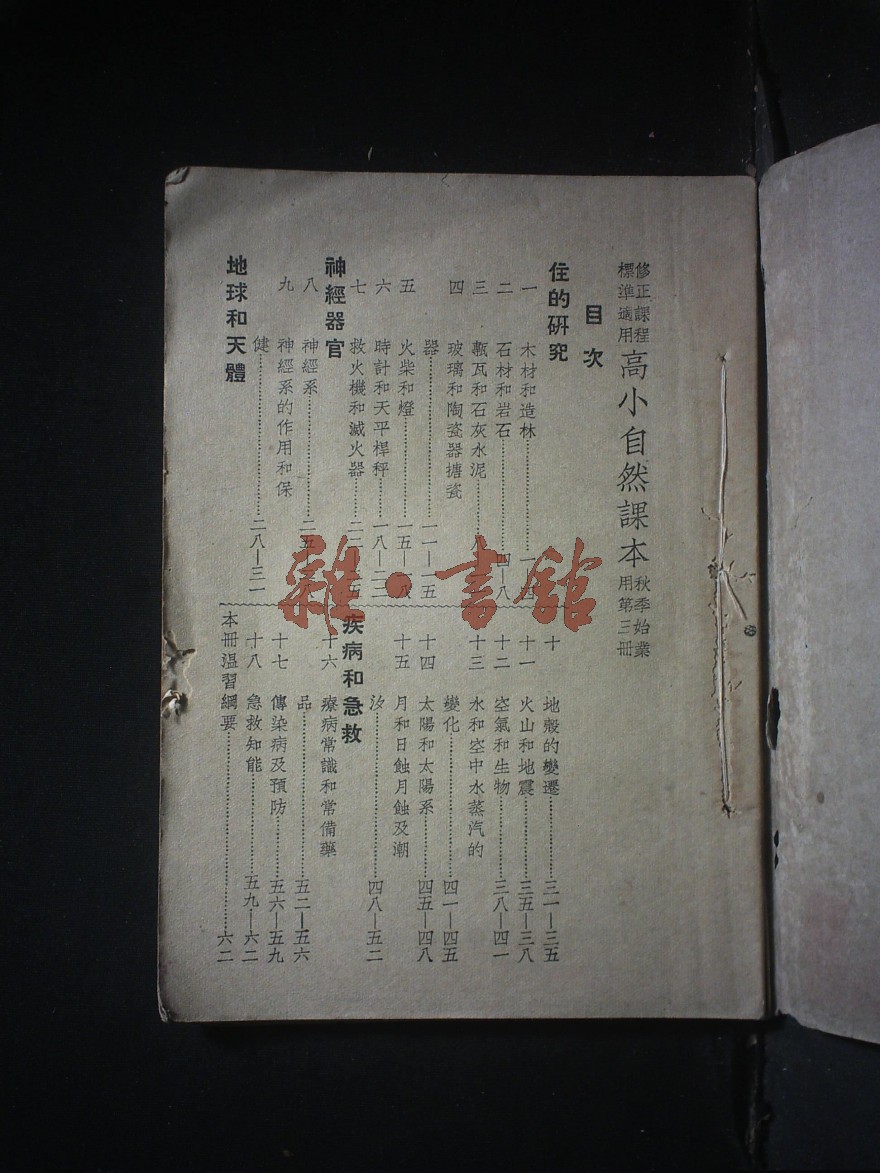 修正課程
標準適用
高小自然課本
秋季始業
用第三冊
目次
住的研究
一 木材和造林
二 石材和岩石 四—八
三 甎瓦和石灰水泥
四 玻璃和陶瓷器搪瓷
器 一一—一五
五 火柴和燈 一五—一八
六 時計和天平桿秤 一八—二二
七 救火機和滅火器 二二—二五
神經器官
八 神經系
九 神經系的作用和保
健 二八—三一
地球和天體
十 地殼的變遷 三一—三五
十一 火山和地震 三五—三八
十二 空氣和生物 三八—四一
十三 水和空中水蒸汽的
變化 四一—四五
十四 太陽和太陽系 四五—四八
十五 月和日蝕月蝕及潮
汐 四八—五二
疾病和急救
十六 療病常識和常備藥
品 五二—五六
十七 傳染病及預防 五六—五九
十八 急救知能 五九—六二
本冊溫習綱要 六二
雜·書館